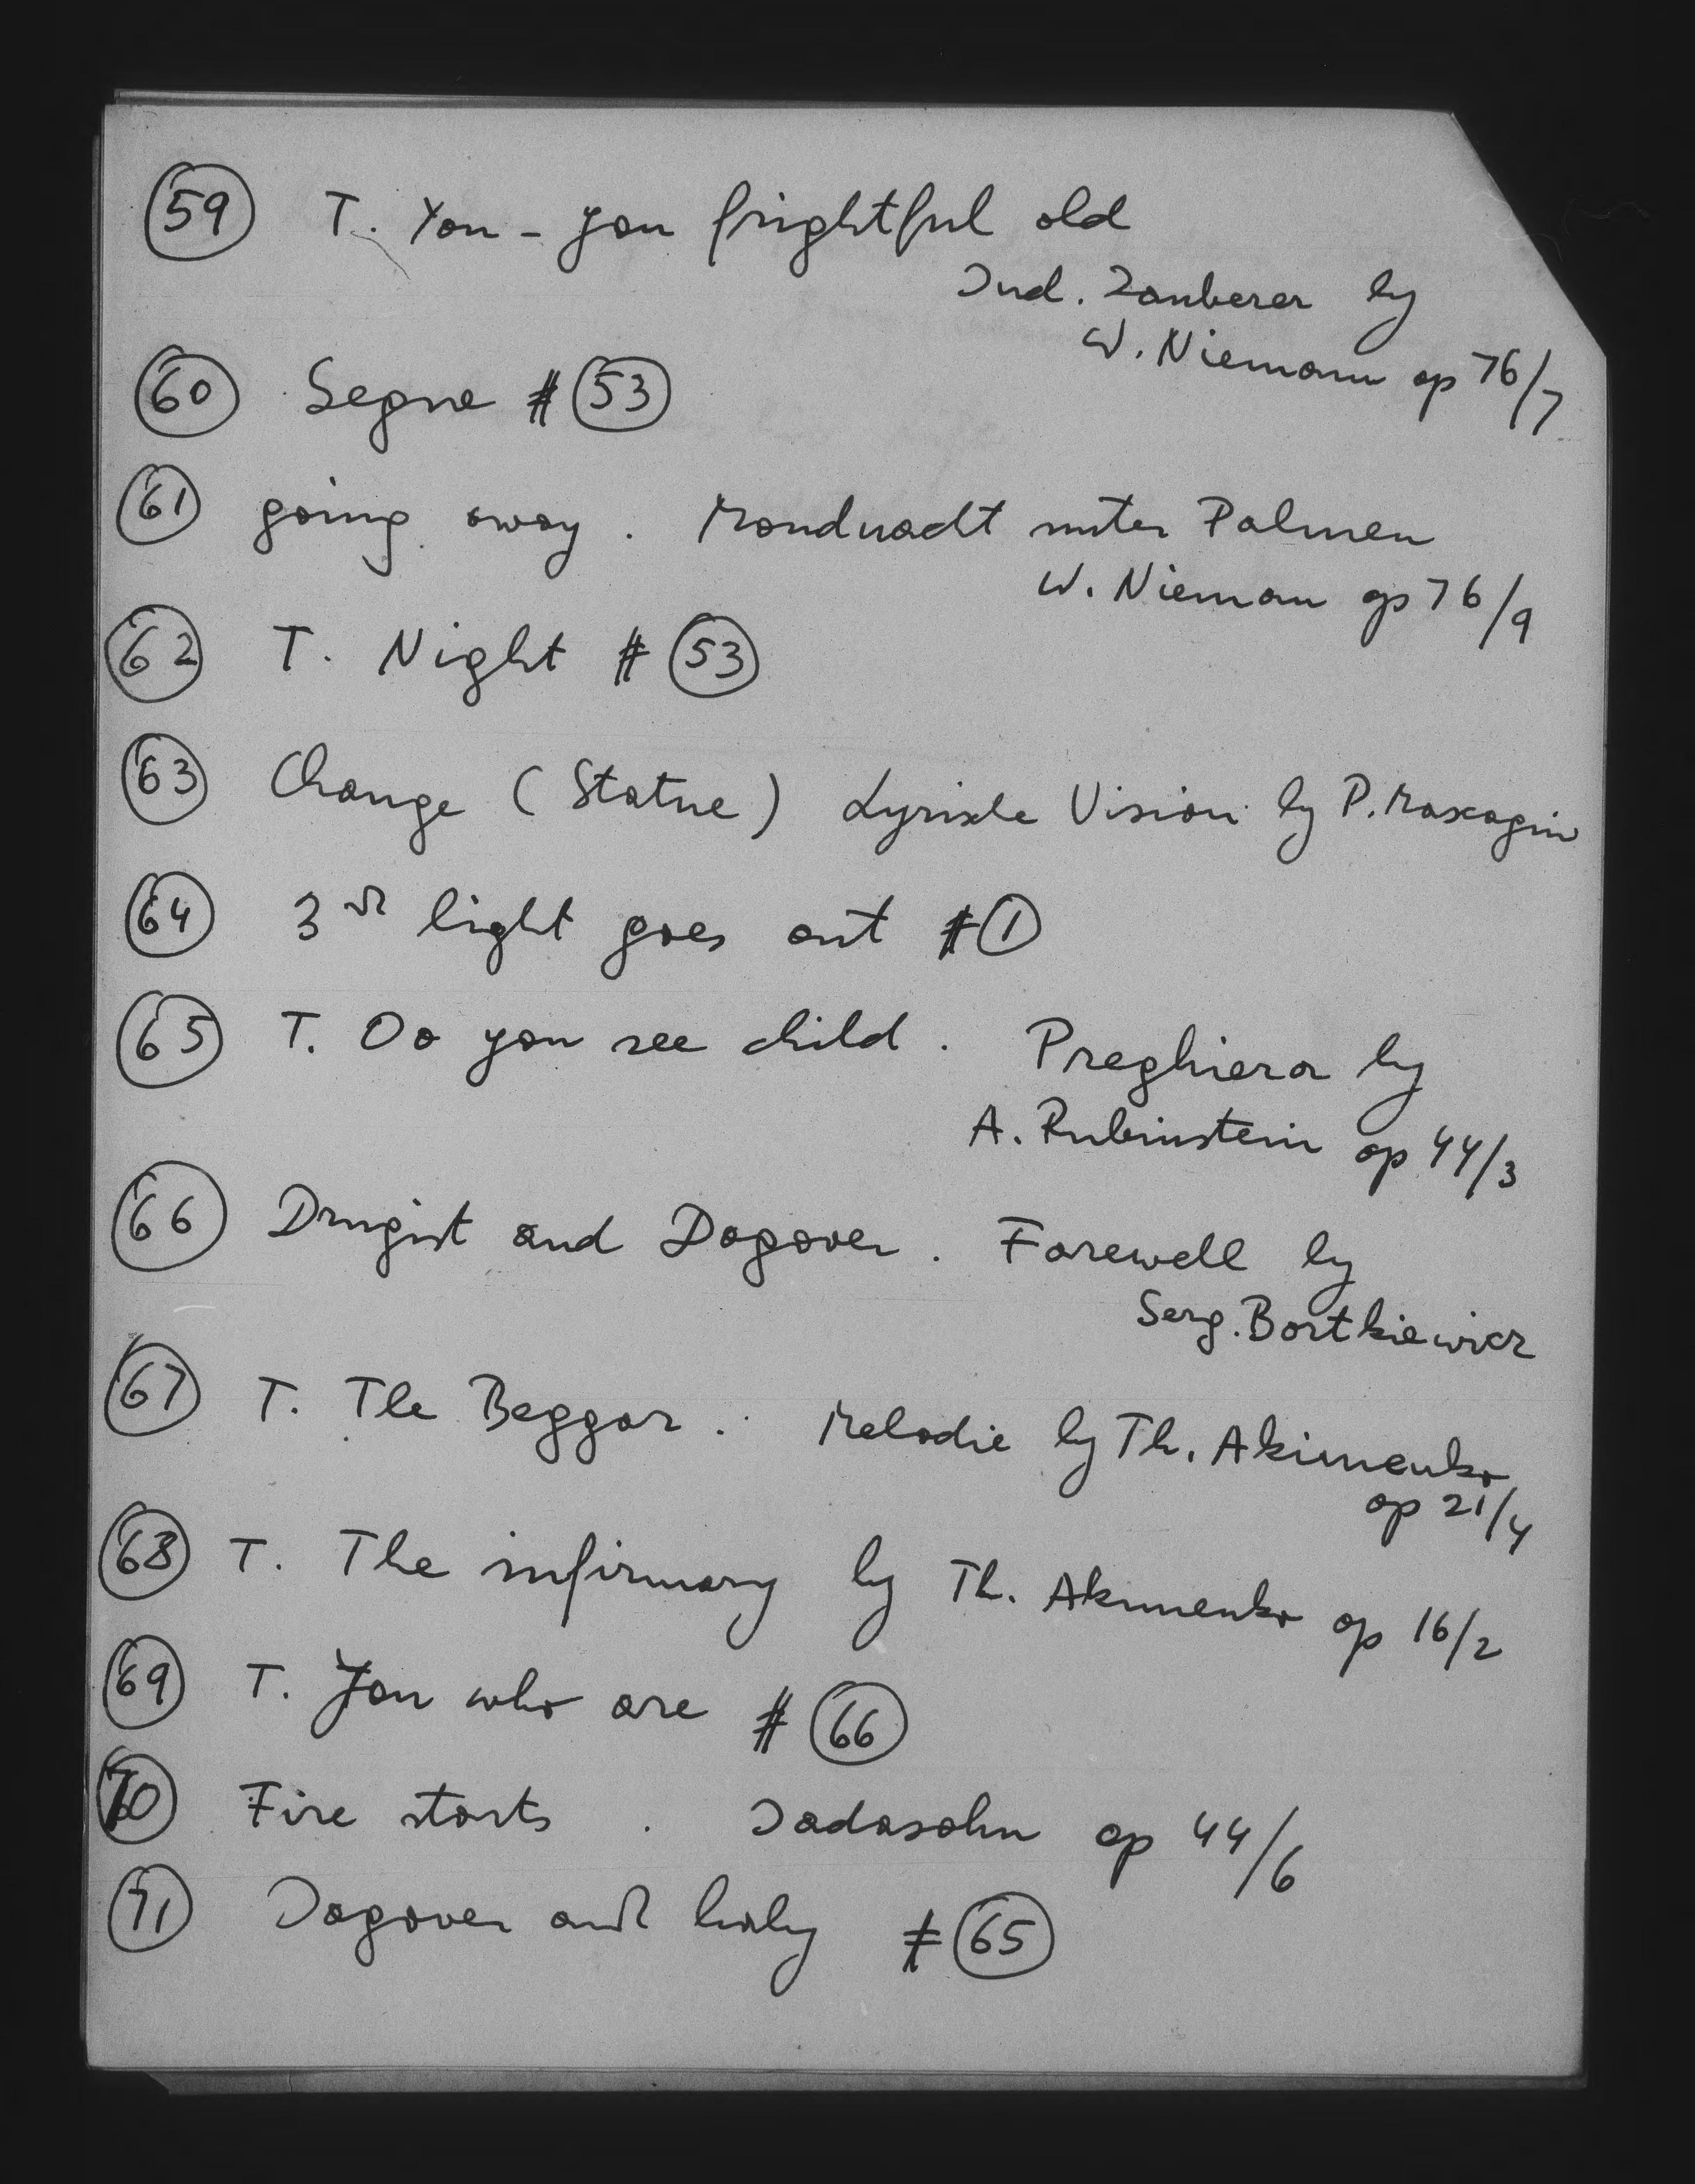 59 T. You - you frightful old
Ind. Zauberer by
W. Niemann op 76/7
60 Segue # 53
61 going away. Mondnacht unter Palmen
W. Nieman op 76/9
62 T. Night # 53
63 Change (Statue) Lyrische Vision by P. Mascagni
64 3rd light goes out # 1
65 T. Do you see child. Preghiera by
A. Rubinstein op 44/3
66 Drugist and Dagover. Farewell by
Serg. Bortkiewicz
67 T. The Beggar. Melodie by Th. Akimenko
op 21/4
68 T. The infirmary by Th. Akimenko op 16/2
69 T. You who are # 66
70 Fire starts. Jadasohn op 44/6
71 Dagover and baby # 65